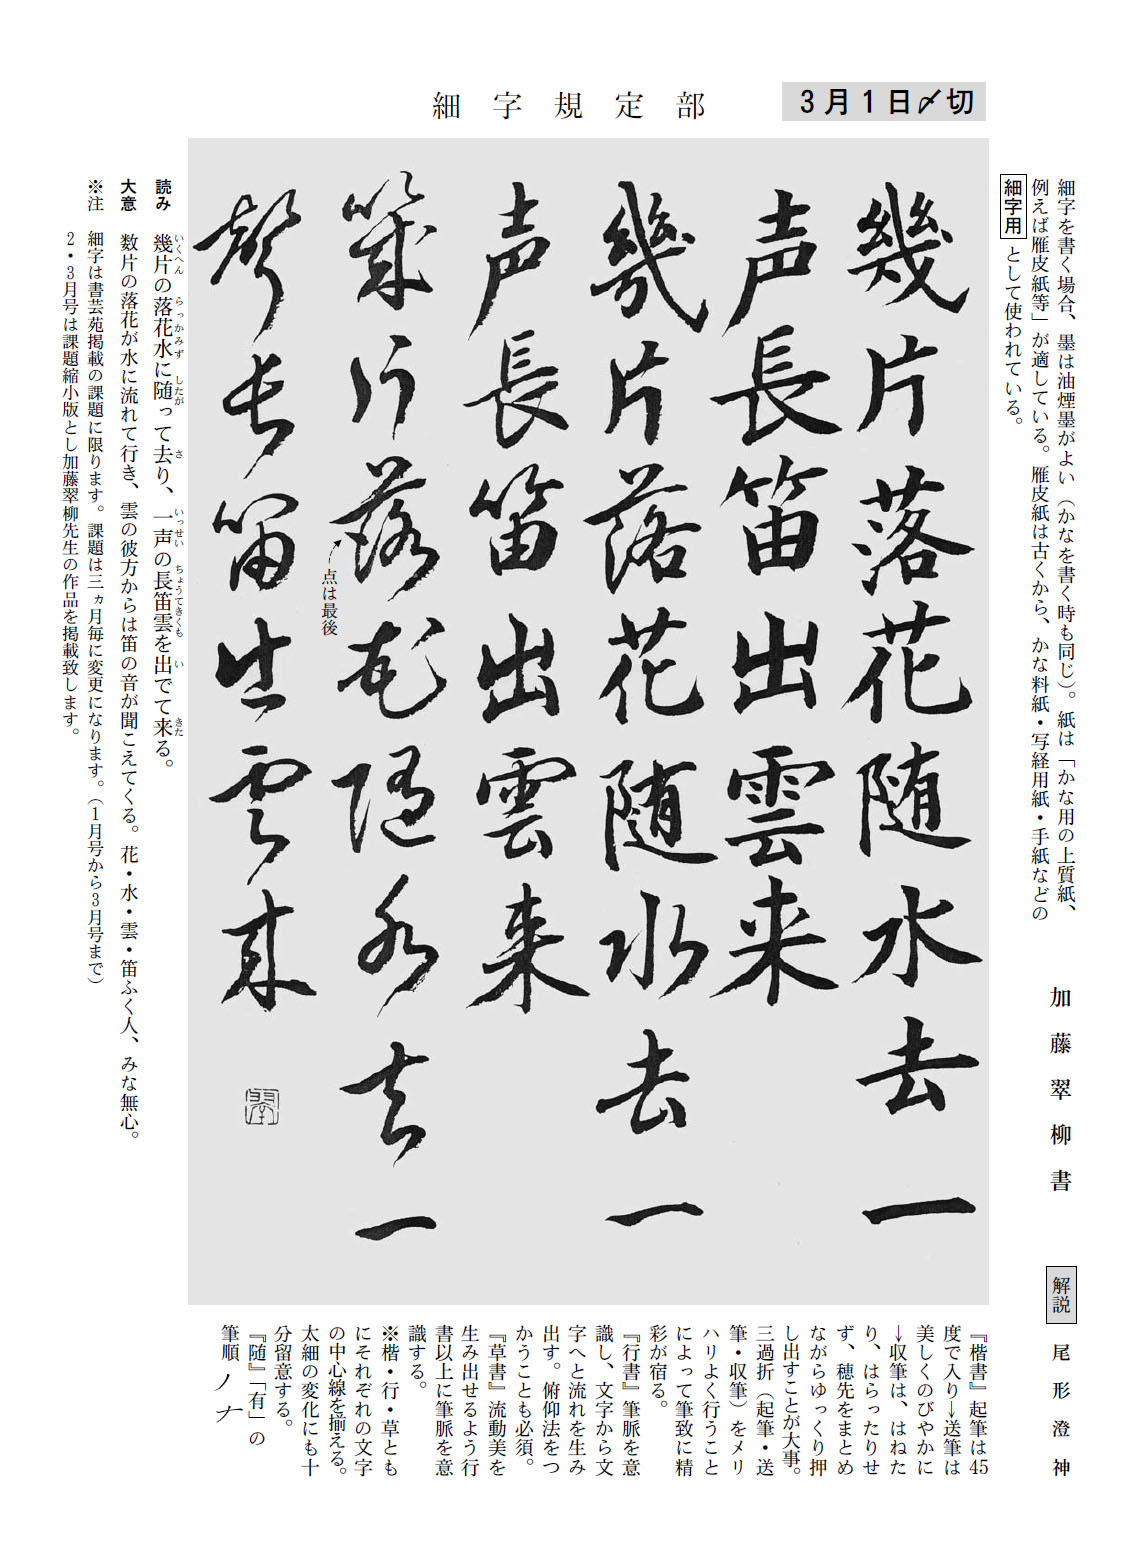 3月1日〆切
細字規定部
細字を書く場合、墨は油煙墨がよい（かなを書く時も同じ）。紙は「かな用の上質紙、
例えば雁皮紙等」が適している。雁皮紙は古くから、かな料紙・写経用紙・手紙などの
細字用として使われている。
加藤翠柳書
解説　尾形澄神
幾片落花随水去一
声長笛出雲来
幾片落花随水去一
声長笛出雲来
幾片落花随水去一
聲長笛出雲来
←点は最後
読み　幾片の落花水に随って去り、一声の長笛雲を出でて来る。
いくへん　らっかみず　したが　さ　いっせい　ちょうてきくも　い　きた
大意　数片の落花が水に流れて行き、雲の彼方からは笛の音が聞こえてくる。花・水・雲・笛ふく人、みな無心。
※注　細字は書芸苑掲載の課題に限ります。課題は三ヵ月毎に変更になります。（1月号から3月号まで）
2・3月号は課題縮小版とし加藤翠柳先生の作品を掲載致します。
『楷書』起筆は45
度で入り→送筆は
美しくのびやかに
→収筆は、はねた
り、はらったりせ
ず、穂先をまとめ
ながらゆっくり押
し出すことが大事。
三過折（起筆・送
筆・収筆）をメリ
ハリよく行うこと
によって筆致に精
彩が宿る。
『行書』筆脈を意
識し、文字から文
字へと流れを生み
出す。俯仰法をつ
かうことも必須。
『草書』流動美を
生み出せるよう行
書以上に筆脈を意
識する。
※楷・行・草とも
にそれぞれの文字
の中心線を揃える。
太細の変化にも十
分留意する。
『随』「有」の
筆順　ノナ